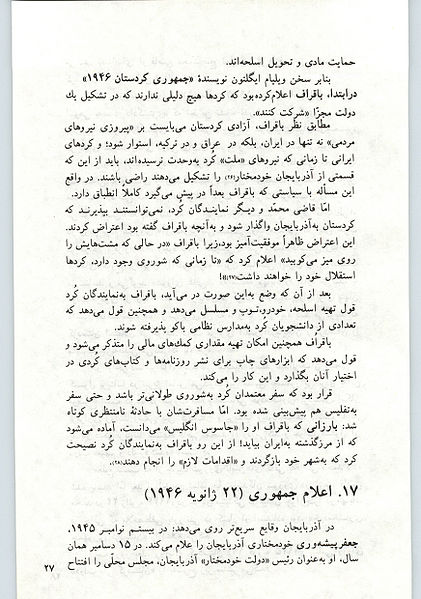 حمایت مادی و تحویل اسلحه‌اند.
بنابر سخن ویلیام ایگلتون نویسندهٔ «جمهوری کردستان ۱۹۴۶»
درابتدا، باقراف اعلام‌کرده‌بود که کردها هیچ دلیلی ندارند که در تشکیل یك
دولت مجزّا «شرکت کنند».
مطابق نظر باقراف، آزادی کردستان می‌بایست بر «پیروزی نیروهای
مردمی» نه تنها در ایران، بلکه در عراق و در ترکیه، استوار شود؛ و کردهای
ایرانی تا زمانی که نیروهای «ملت» کُرد به‌وحدت نرسیده‌اند، باید از این که
قسمتی از آذربایجان خودمختار(۲۶) را تشکیل می‌دهند راضی باشند. در واقع
این مسأله با سیاستی که باقراف بعداً در پیش می‌گیرد کاملاً انطباق دارد.
امّا قاضی محمّد و دیگر نمایندگان کُرد، نمی‌توانستند بپذیرند که
کردستان به‌آذربایجان واگذار شود و به‌آنچه باقراف گفته بود اعتراض کردند.
این اعتراض ظاهراً موفقیت‌آمیز بود،زیرا باقراف «در حالی که مشت‌هایش را
روی میز می‌کوبید» اعلام کرد که «تا زمانی که شوروی وجود دارد، کردها
استقلال خود را خواهند داشت»(۲۷)!
بعد از آن که وضع به‌این صورت در می‌آید، باقراف به‌نمایندگان کُرد
قول تهیه اسلحه، خودرو،توپ و مسلسل می‌دهد و همچنین قول می‌دهد که
تعدادی از دانشجویان کُرد به‌مدارس نظامی باکو پذیرفته شوند.
باقراف همچنین امکان تهیه مقداری کمك‌های مالی را متذکر می‌شود و
قول می‌دهد که ابزارهای چاپ برای نشر روزنامه‌ها و کتاب‌های کُردی در
اختیار آنان بگذارد و این کار را می‌کند.
قرار بود که سفر معتمدان کُرد به‌شوروی طولانی‌تر باشد و حتی سفر
به‌تفلیس هم پیش‌بینی شده بود. امّا مسافرت‌شان با حادثهٔ نامنتظری کوتاه
شد: بارزانی که باقراف او را «جاسوس انگلیس» می‌دانست، آماده می‌شود
که از مرزگذشته به‌ایران بیاید! از این رو باقراف به‌نمایندگان کُرد نصیحت
کرد که به‌شهر خود بازگردند و «اقدامات لازم» را انجام دهند(۲۸).
۱۷. اعلام جمهوری (۲۲ ژانویه ۱۹۴۶)
در آذربایجان وقایع سریع‌تر روی می‌دهد: در بیستم نوامبر ۱۹۴۵،
جعفرپیشه‌وری خودمختاری آذربایجان را علام می‌کند. در ۱۵ دسامبر همان
سال، او به‌عنوان رئیس «دولت خودمختار» آذربایجان، مجلس محلّی را افتتاح
۲۷